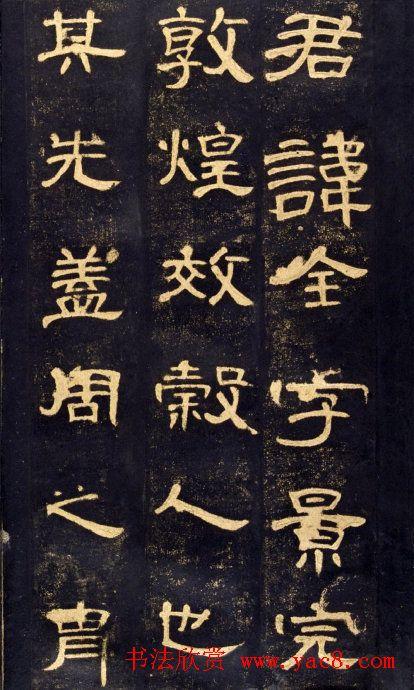 君諱全字景完
敦煌效穀人也
其先蓋周之胄
书法欣赏 www.yac8.com